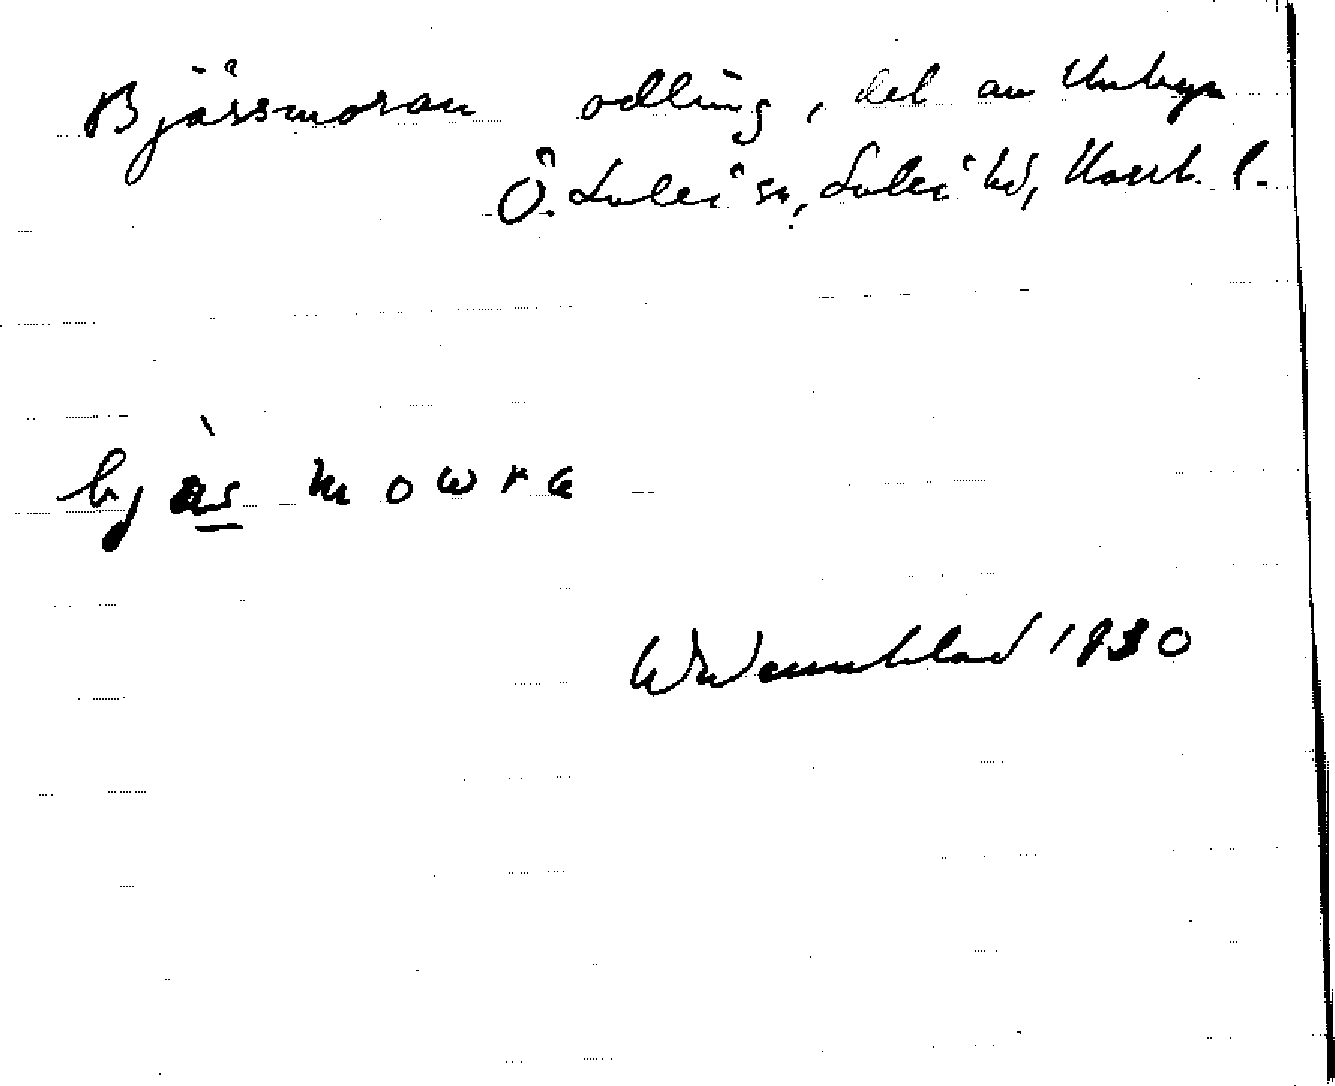 Bjässmoran odling, del av Unbyn
Ö. Luleå sn, Luleå hd, Norrb. l.
bj às mowra
W Wennblad 1930